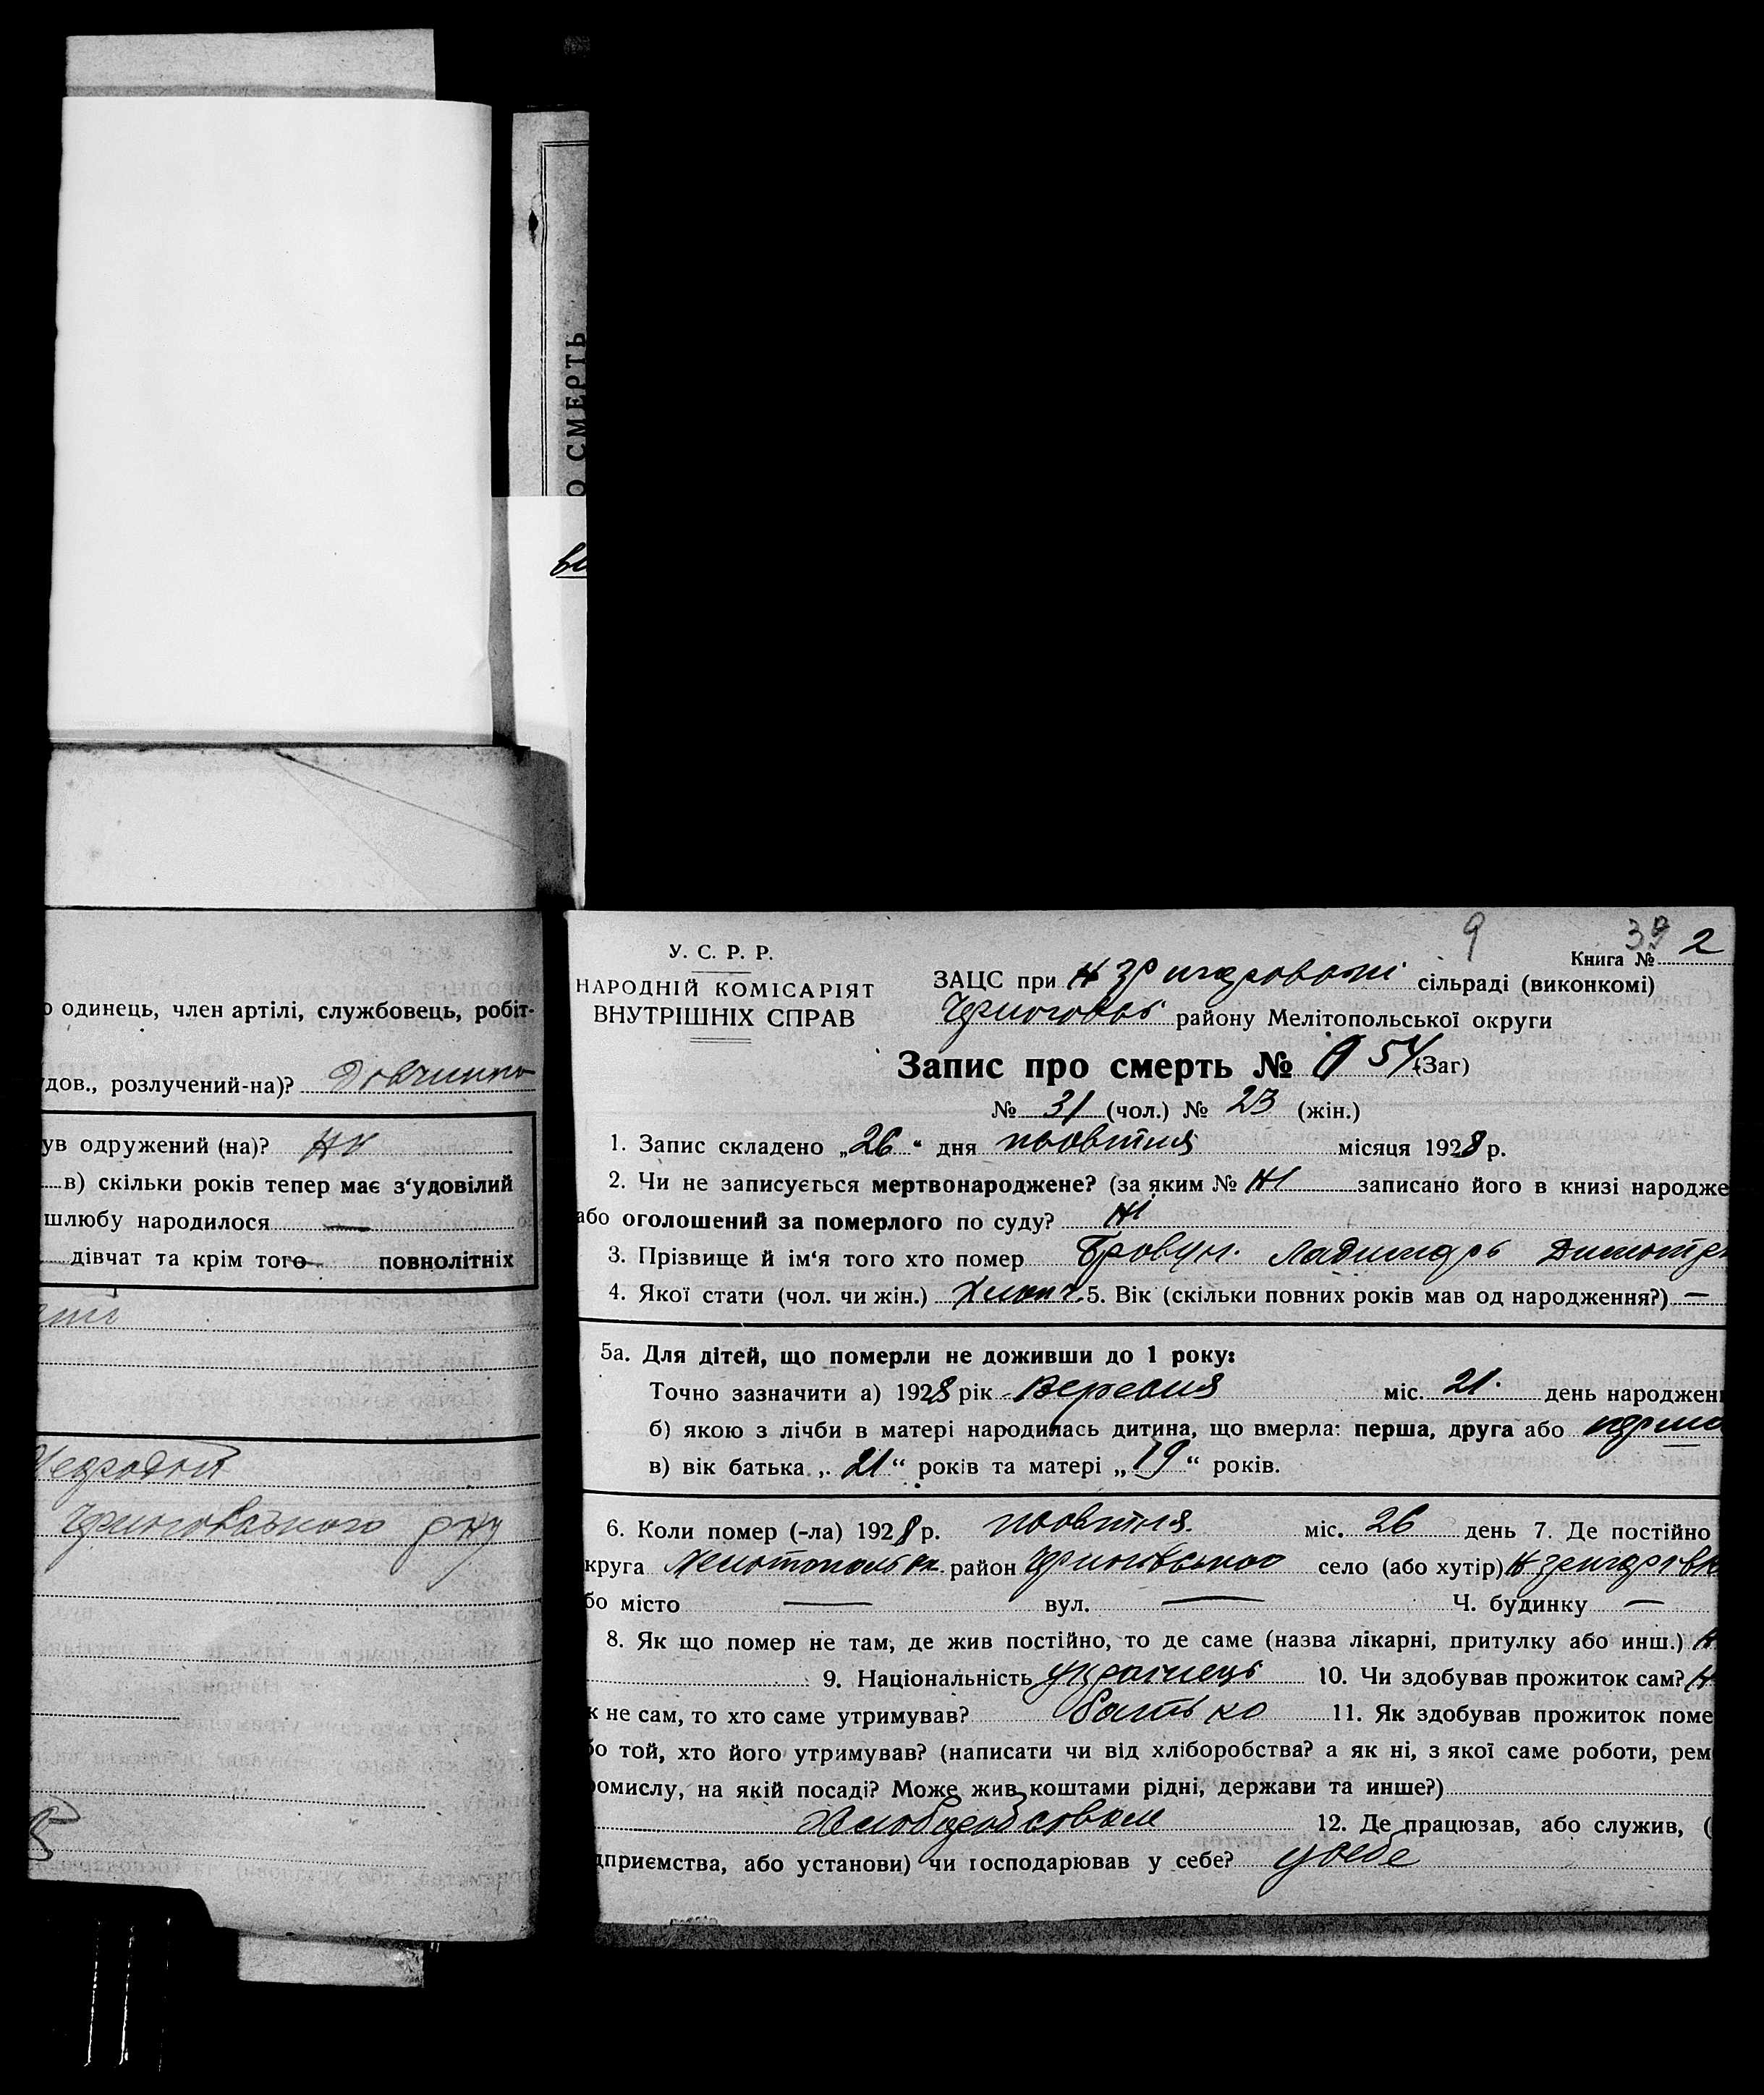 О СМЕРТЬ
о одинець, член артілі, службовець, робіт-
дов., розлучений-на)?
ув одружений (на)?
в) скільки років тепер має з'удовілий
шлюбу народилося —
дівчат та крім того — повнолітніх
9 39
У. С. Р. Р.
Книга № 2
НАРОДНІЙ КОМІСАРІЯТ
ВНУТРІШНІХ СПРАВ
ЗАЦС при сільраді (виконкомі)
району Мелітопольської округи
Запис про смерть № 54 (Заг)
№ 31 (чол.) № 23 (жін.)
1. Запис складено „26“ дня жовтня місяця 1928 р.
2. Чи не записується мертвонароджене? (за яким № Ні записано його в книзі народже
або оголошений за померлого по суду? Ні
3. Прізвище й ім'я того хто помер
4. Якої стати (чол. чи жін.) Хлопч. 5. Вік (скільки повних років мав од народження?) —
5а. Для дітей, що померли не доживши до 1 року:
Точно зазначити а) 1928 рік Вересня міс. 21 день народжен
б) якою з лічби в матері народилась дитина, що вмерла: перша, друга або
в) вік батька „21“ років та матері „19“ років.
6. Коли помер (-ла) 1928 р. жовтня міс. 26 день 7. Де постійно
круга район село (або хутір)
бо місто — вул. — Ч. будинку —
8. Як що помер не там, де жив постійно, то де саме (назва лікарні, притулку або инш.)
9. Національність українець 10. Чи здобував прожиток сам?
к не сам, то хто саме утримував? батько 11. Як здобував прожиток поме
бо той, хто його утримував? (написати чи від хліборобства? а як ні, з якої саме роботи, рем
ромислу, на якій посаді? Може жив коштами рідні, держави та инше?)
12. Де працюзав, або служив, (
дприємства, або установи) чи господарював у себе? у себе